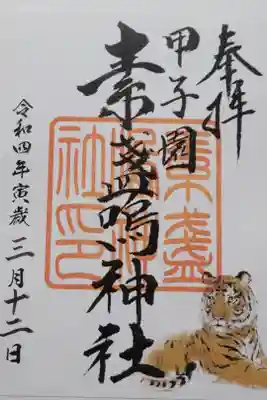 奉拝
甲子園
素盞嗚神社
令和四年寅歳三月十二日
素盞
社印